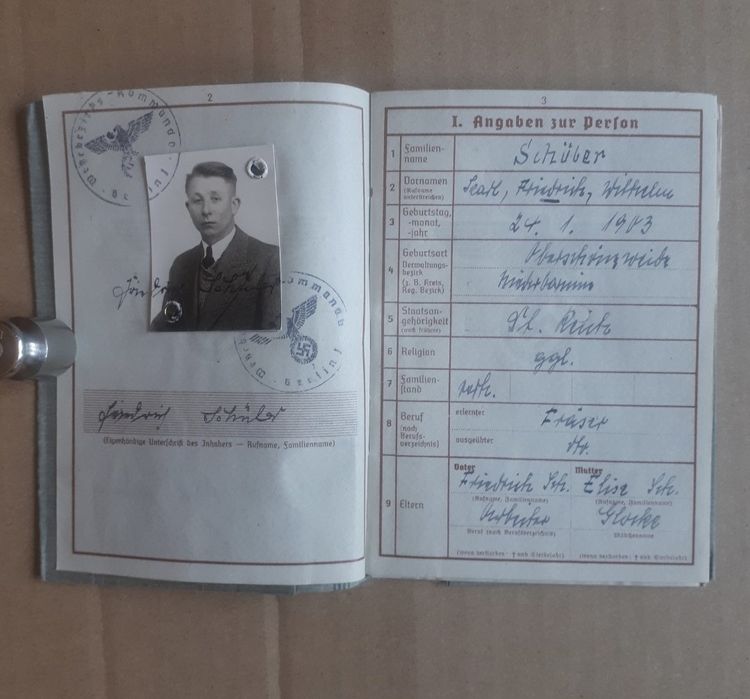 2
Wehrbezirks-Kommando
Berlin
Kommando
Berlin
Friedrich Schüler
(Eigenhändige Unterschrift des Inhabers — Rufname, Familienname)
3
I. Angaben zur Person
1 Familien-
name
2 Vornamen Friedrich, Wilhelm
(Rufname
unterstreichen)
3 Geburtstag, 24. 1. 1903
-monat,
-jahr
4 Geburtsort Oberschöneweide
Verwaltungs-
bezirk Niederbarnim
(z. B. Kreis,
Reg. Bezirk)
5 Staatsan-
gehörigkeit
(auch frühere)
6 Religion
7 Familien-
stand verh.
8 Beruf erlernter Fräser
(nach
Berufs-
verzeichnis) ausgeübter
9 Eltern
Vater Mutter
Friedrich Sch. Elise Sch.
(Rufname, Familienname) (Rufname, Familienname)
Arbeiter Glocke
Beruf (nach Berufsverzeichnis) Mädchenname
(wenn verstorben † und Sterbejahr) (wenn verstorben † und Sterbejahr)